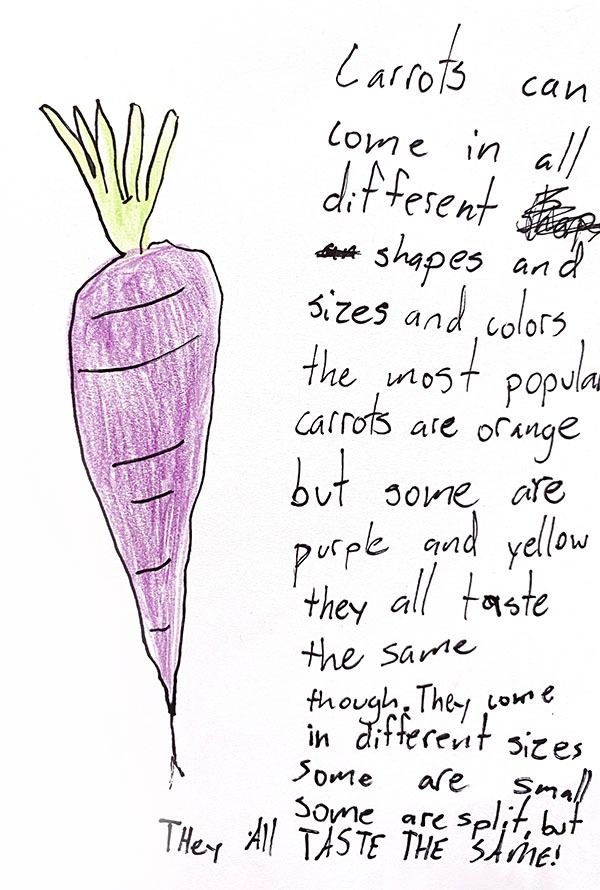 Carrots can
come in all
different
shapes and
sizes and colors
the most popular
carrots are orange
but some are
purple and yellow
they all taste
the same
though. They come
in different sizes
some are small
some are split, but
THey All TASTE THE SAME!